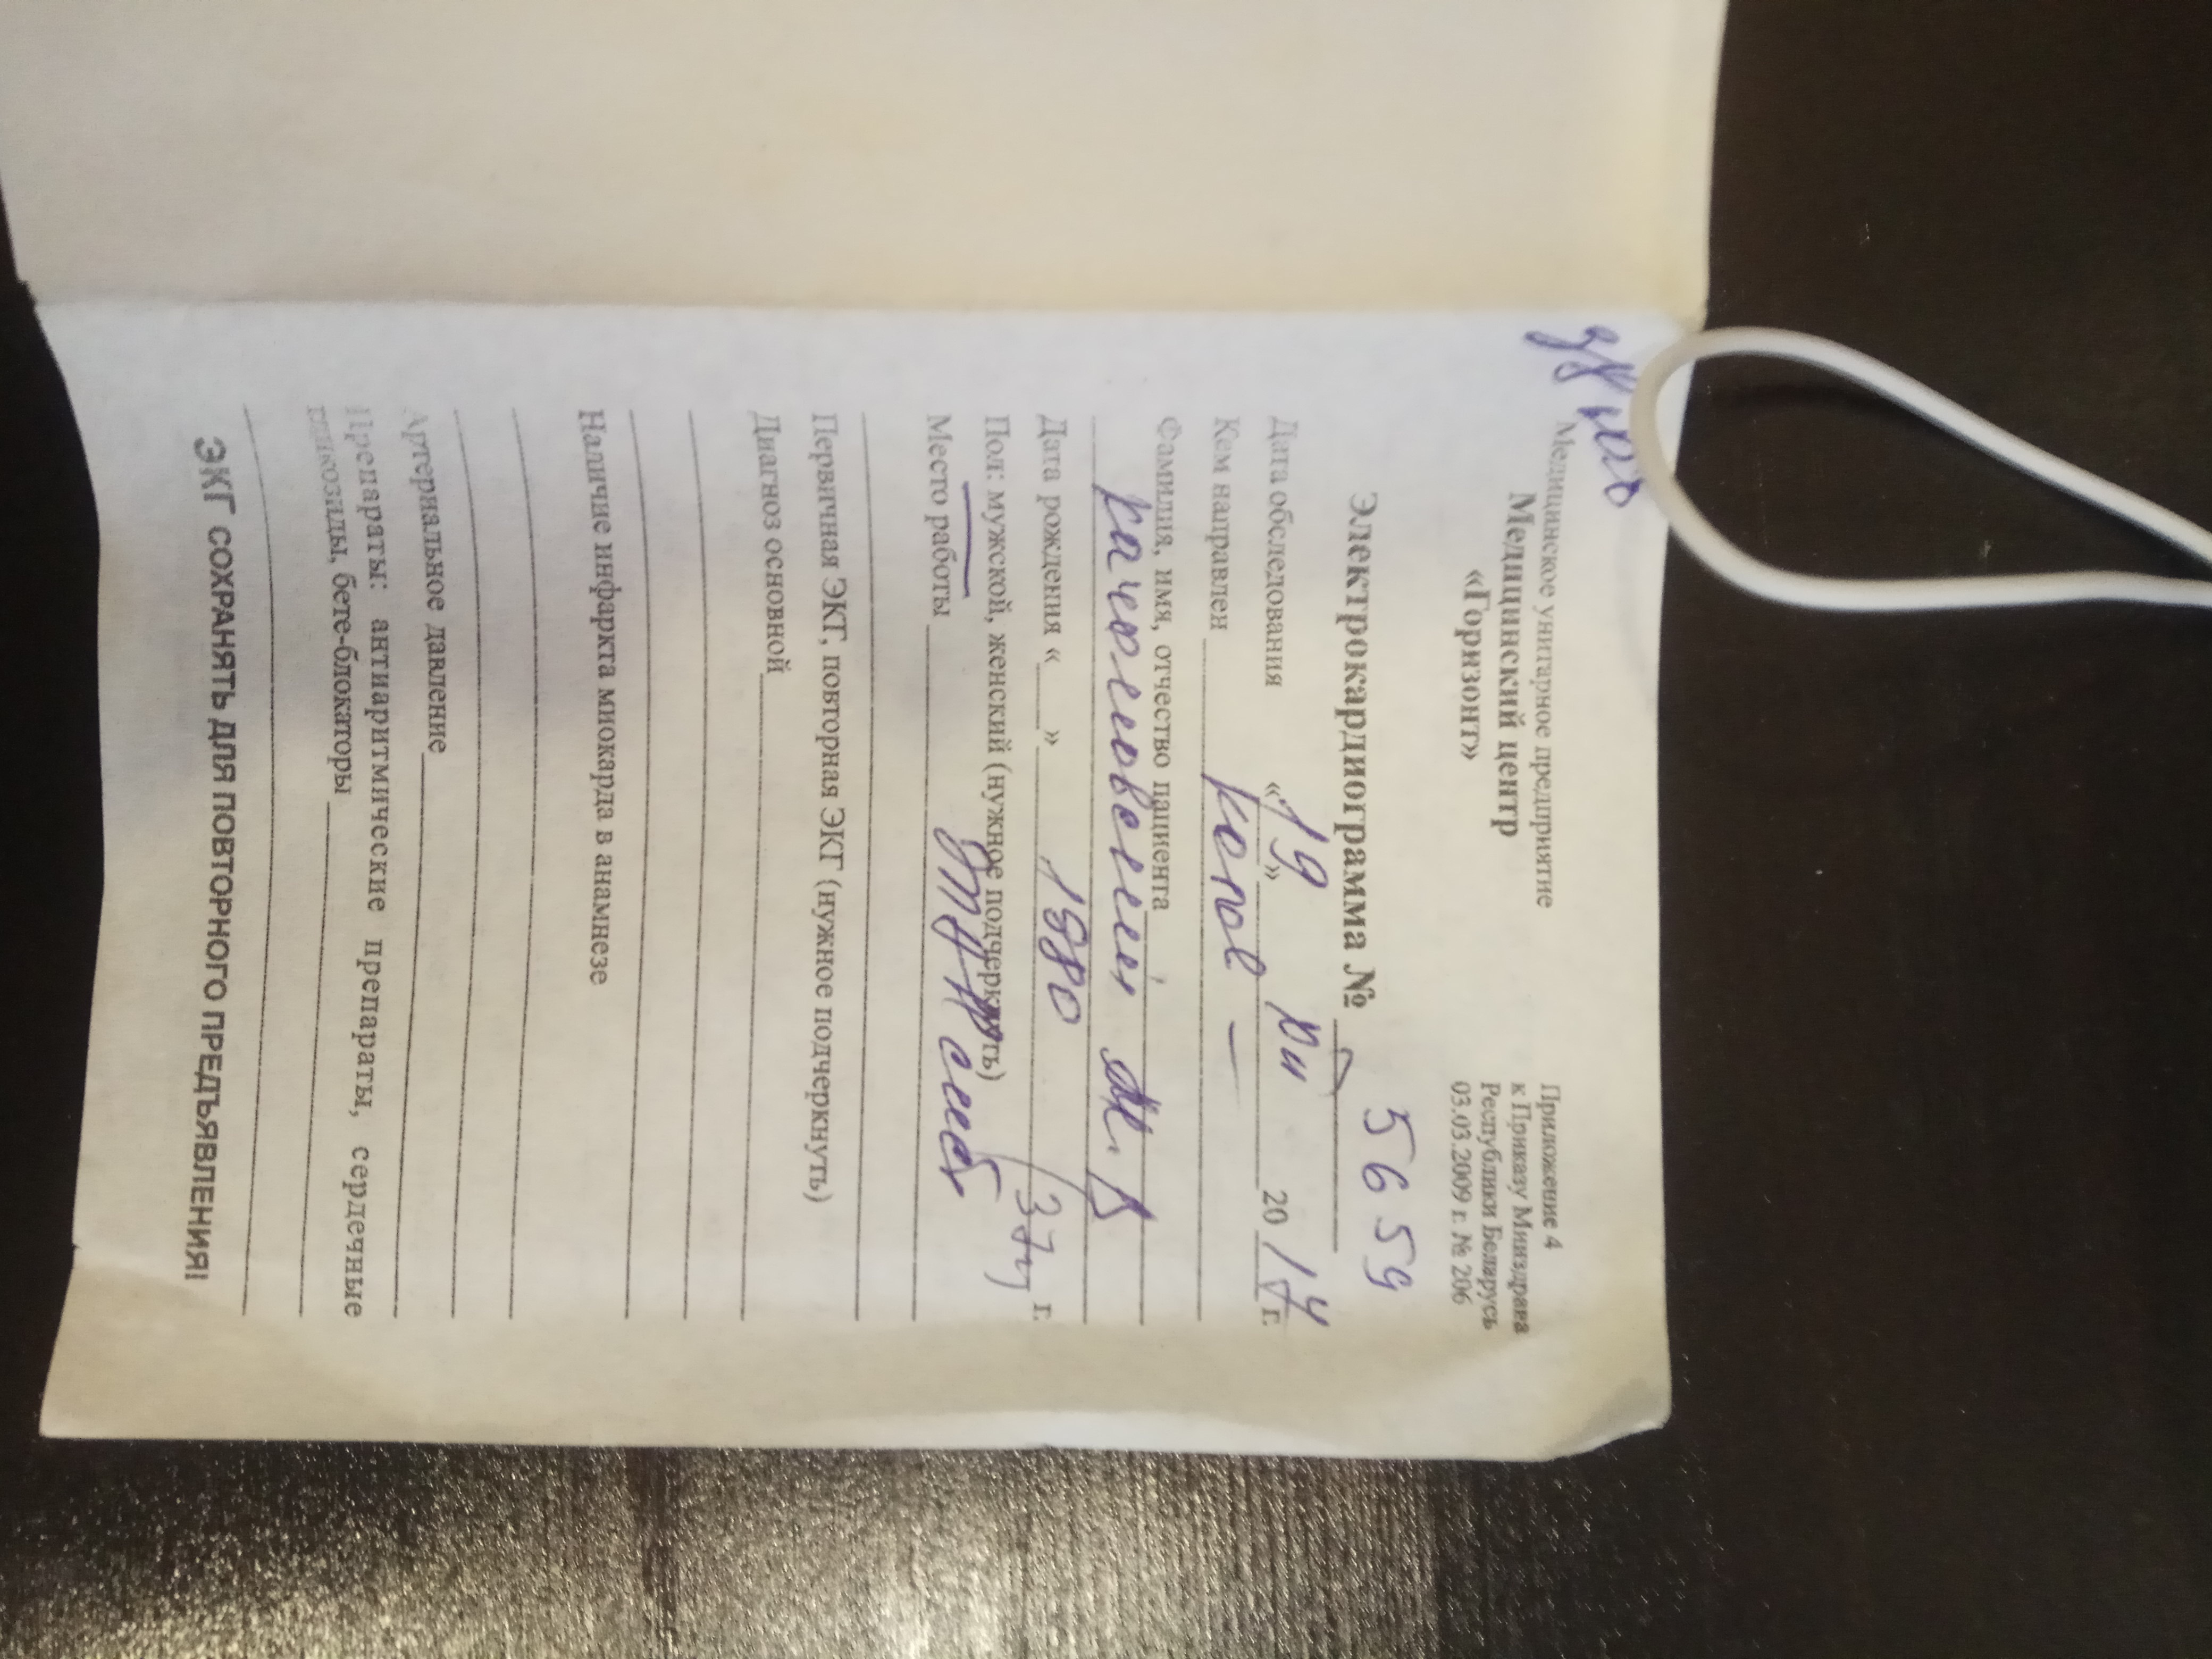 Медицинское унитарное предприятие
Медицинский центр
«Горизонт»
Приложение 4
к Приказу Минздрава
Республики Беларусь
03.03.2009 г. № 206
Электрокардиограмма № 5659
Дата обследования «19» XII 2017 г.
Кем направлен
Фамилия, имя, отчество пациента
Качановский М. В
Дата рождения «___» 1980 г.
Пол: мужской, женский (нужное подчеркнуть)
Место работы
Первичная ЭКГ, повторная ЭКГ (нужное подчеркнуть)
Диагноз основной
Наличие инфаркта миокарда в анамнезе
Артериальное давление
Препараты: антиаритмические препараты, сердечные
гликозиды, бете-блокаторы
ЭКГ СОХРАНЯТЬ ДЛЯ ПОВТОРНОГО ПРЕДЪЯВЛЕНИЯ!